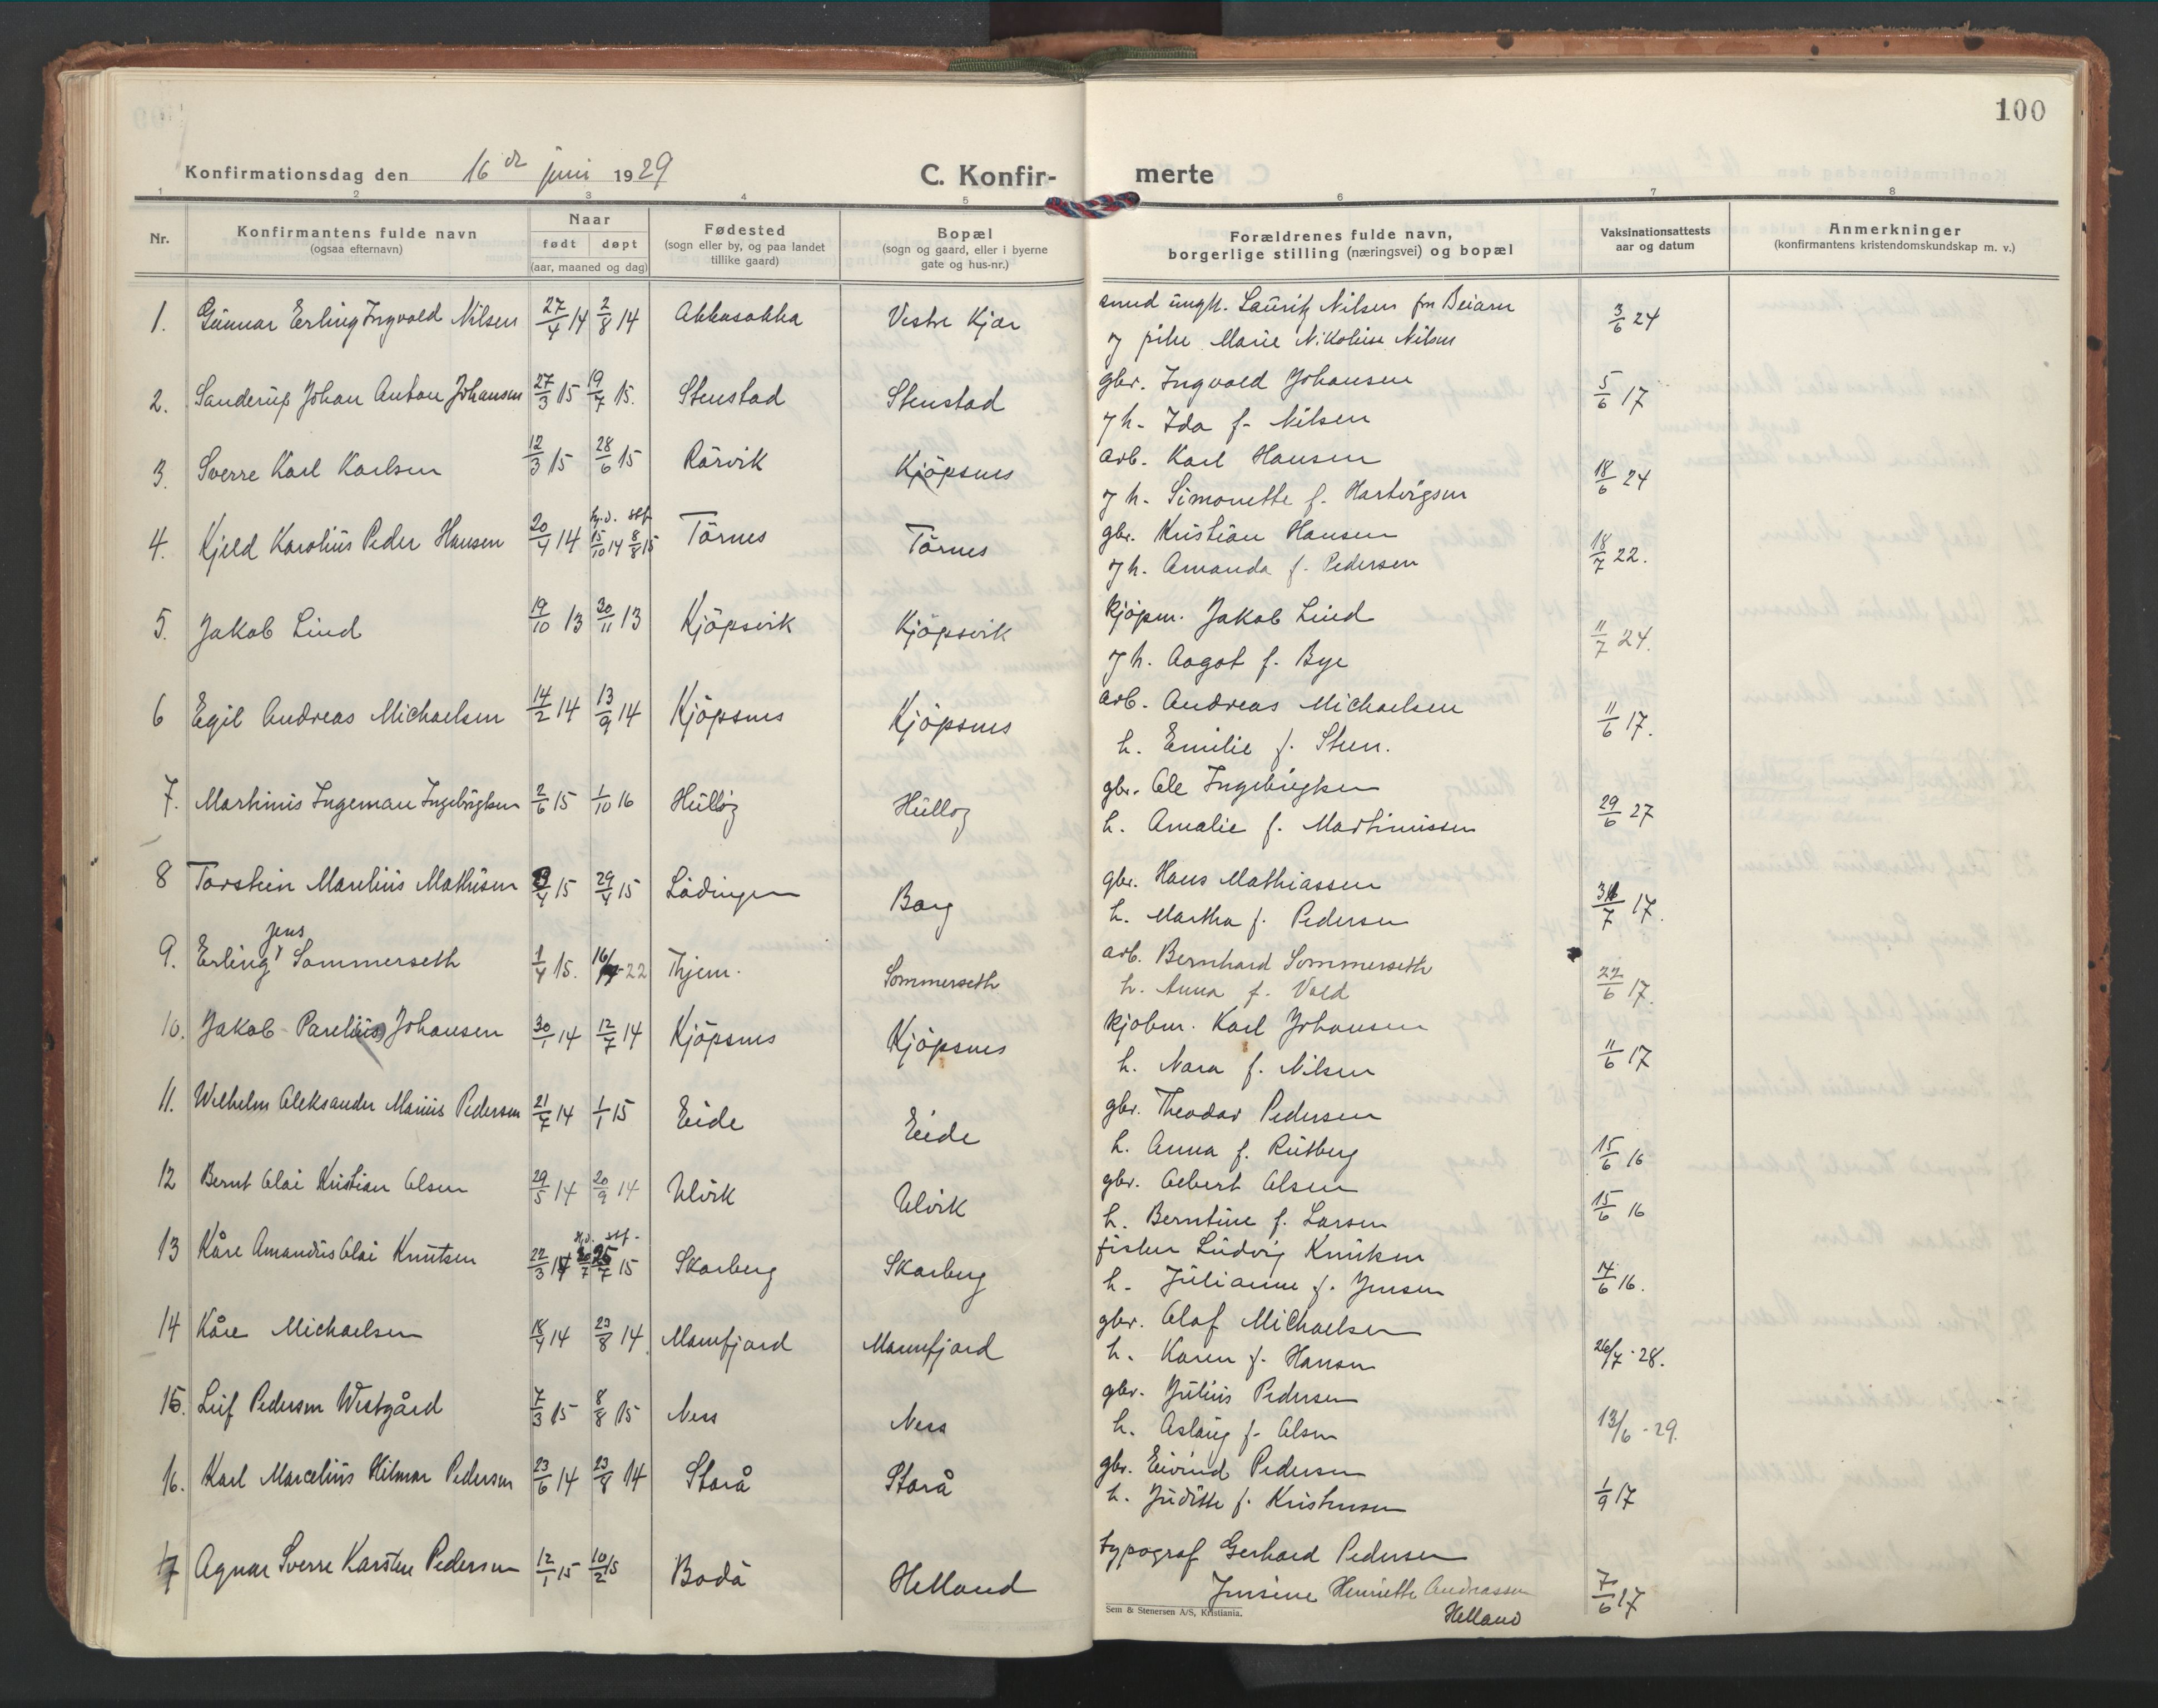 100
Konfirmationsdag den 16de juni 1929
C. Konfir- merte
1 2 3 4 5 6 7 8
Nr.
Konfirmantens fulde navn
(ogsaa efternavn)
Naar
født døpt
(aar, maaned og dag)
Fødested
(sogn eller by, og paa landet
tillike gaard)
Bopæl
(sogn og gaard, eller i byerne
gate og hus-nr.)
Forældrenes fulde navn,
borgerlige stilling (næringsvei) og bopæl
Vaksinationsattests
aar og datum
Anmerkninger
(konfirmantens kristendomskundskap m. v.)
1. Gunnar Erling Ingvald Nilsen 27/4 14 2/8 14 Vestre Kjær ungk. Lauritz Nilsen fra Beiarn 3/6 24
og pike Marie Nikoline Nilsen
2. Sanderup Johan Anton Johansen 27/3 15 19/7 15. Stenstad Stenstad gbr. Ingvald Johansen 5/6 17
og h. Ida f. Nilsen
3. Sverre Karl Karlsen 12/3 15 28/6 15 Rørvik Kjöpsnes arb. Karl Hansen 18/6 24
og h. Simonette f. Hartvigsen
hj.d. stf
4. Kjeld Karolius Peder Hansen 20/4 14 15/10 14 8/8 15 Törnes Törnes gbr. Kristian Hansen 18/7 22.
og h. Amanda f. Pedersen
5. Jakob Lind 19/10 13 30/11 13 Kjöpsvik Kjöpsvik kjöpm. Jakob Lind 11/7 24.
og h. Aagot f. Bye
6 Egil Andreas Michaelsen 14/2 14 13/9 14 Kjöpsnes Kjöpsnes arb. Andreas Michaelsen 11/6 17.
h. Emilie f. Steen.
7. Martinus Ingeman Ingebrigtsen 2/6 15 1/10 16 Hulløy Hulløy gbr. Ole Ingebrigtsen 29/6 27
h. Amalie f. Martinussen
8 Torstein Marelius Mathisen 15 29/4 15 Lødingen Borg gbr. Hans Mathiassen 17.
h. Martha f. Pedersen
9. Erling Jens Sommerseth 1/4 15. 22 Thjem. Sommerseth arb. Bernhard Sommerseth 22/6 17.
h. Anna f. Vold
10. Jakob Parelius Johansen 30/1 14 12/7 14 Kjöpsnes Kjöpsnes kjøbm. Karl Johansen 11/6 17
h. Nora f. Nilsen
11. Wilhelm Aleksander Marius Pedersen 21/7 14 1/1 15 Eide Eide gbr. Theodor Pedersen 15/6 16
h. Anna f. Rutberg
12 Bernt Olai Kristian Olsen 29/5 14 20/9 14 Ulvik Ulvik gbr. Albert Olsen 15/6 16
h. Berntine f. Larsen
hj.d. stf.
13 Kåre Amandus Olai Knutsen 22/3 14 25/7 15 Skarberg Skarberg fisker Ludvig Knutsen 14/6 16.
h. Julianne f. Jensen
14 Kåre Michaelsen 18/4 14 23/8 14. Mannfjord Mannfjord gbr. Olaf Michaelsen 26/7-28.
h. Karen f. Hansen
15. Leif Pedersen Westgård 7/3 15 8/8 15 Ness Ness gbr. Julius Pedersen 13/6-29.
h. Aslaug f. Olsen
16. Karl Marcelius Hilmar Pedersen 23/6 14 23/8 14 Storå Storå gbr. Eivind Pedersen 1/9 17
h. Juditte f. Kristensen
17 Agnar Sverre Karsten Pedersen 12/1 15 10/2 15 Bodö Helland typograf Gerhard Pedersen 7/6 17
Jensine Henriette Andreassen
Helland
Sem & Stenersen A/S, Kristiania.